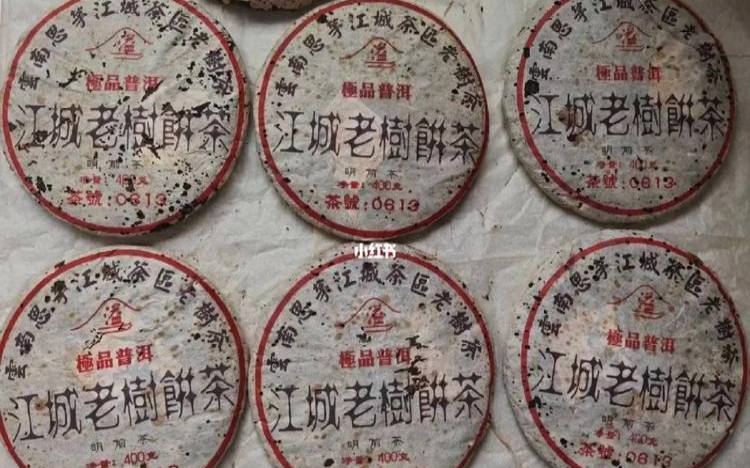 雲南思茅江城茶區老樹茶
極品普洱
江城老樹餅茶
明前茶
净量:400克
茶號:0613
雲南思茅江城茶區老樹茶
極品普洱
江城老樹餅茶
明前茶
净量:400克
茶號:0613
雲南思茅江城茶區老樹茶
極品普洱
江城老樹餅茶
明前茶
净量:400克
茶號:0613
小红书
雲南思茅江城茶區老樹茶
極品普洱
江城老樹餅茶
明前茶
净量:400克
雲南思茅江城茶區老樹茶
極品普洱
江城老樹餅茶
明前茶
净量:400克
雲南思茅江城茶區老樹茶
極品普洱
江城老樹餅茶
明前茶
净量:400克
茶號:0613